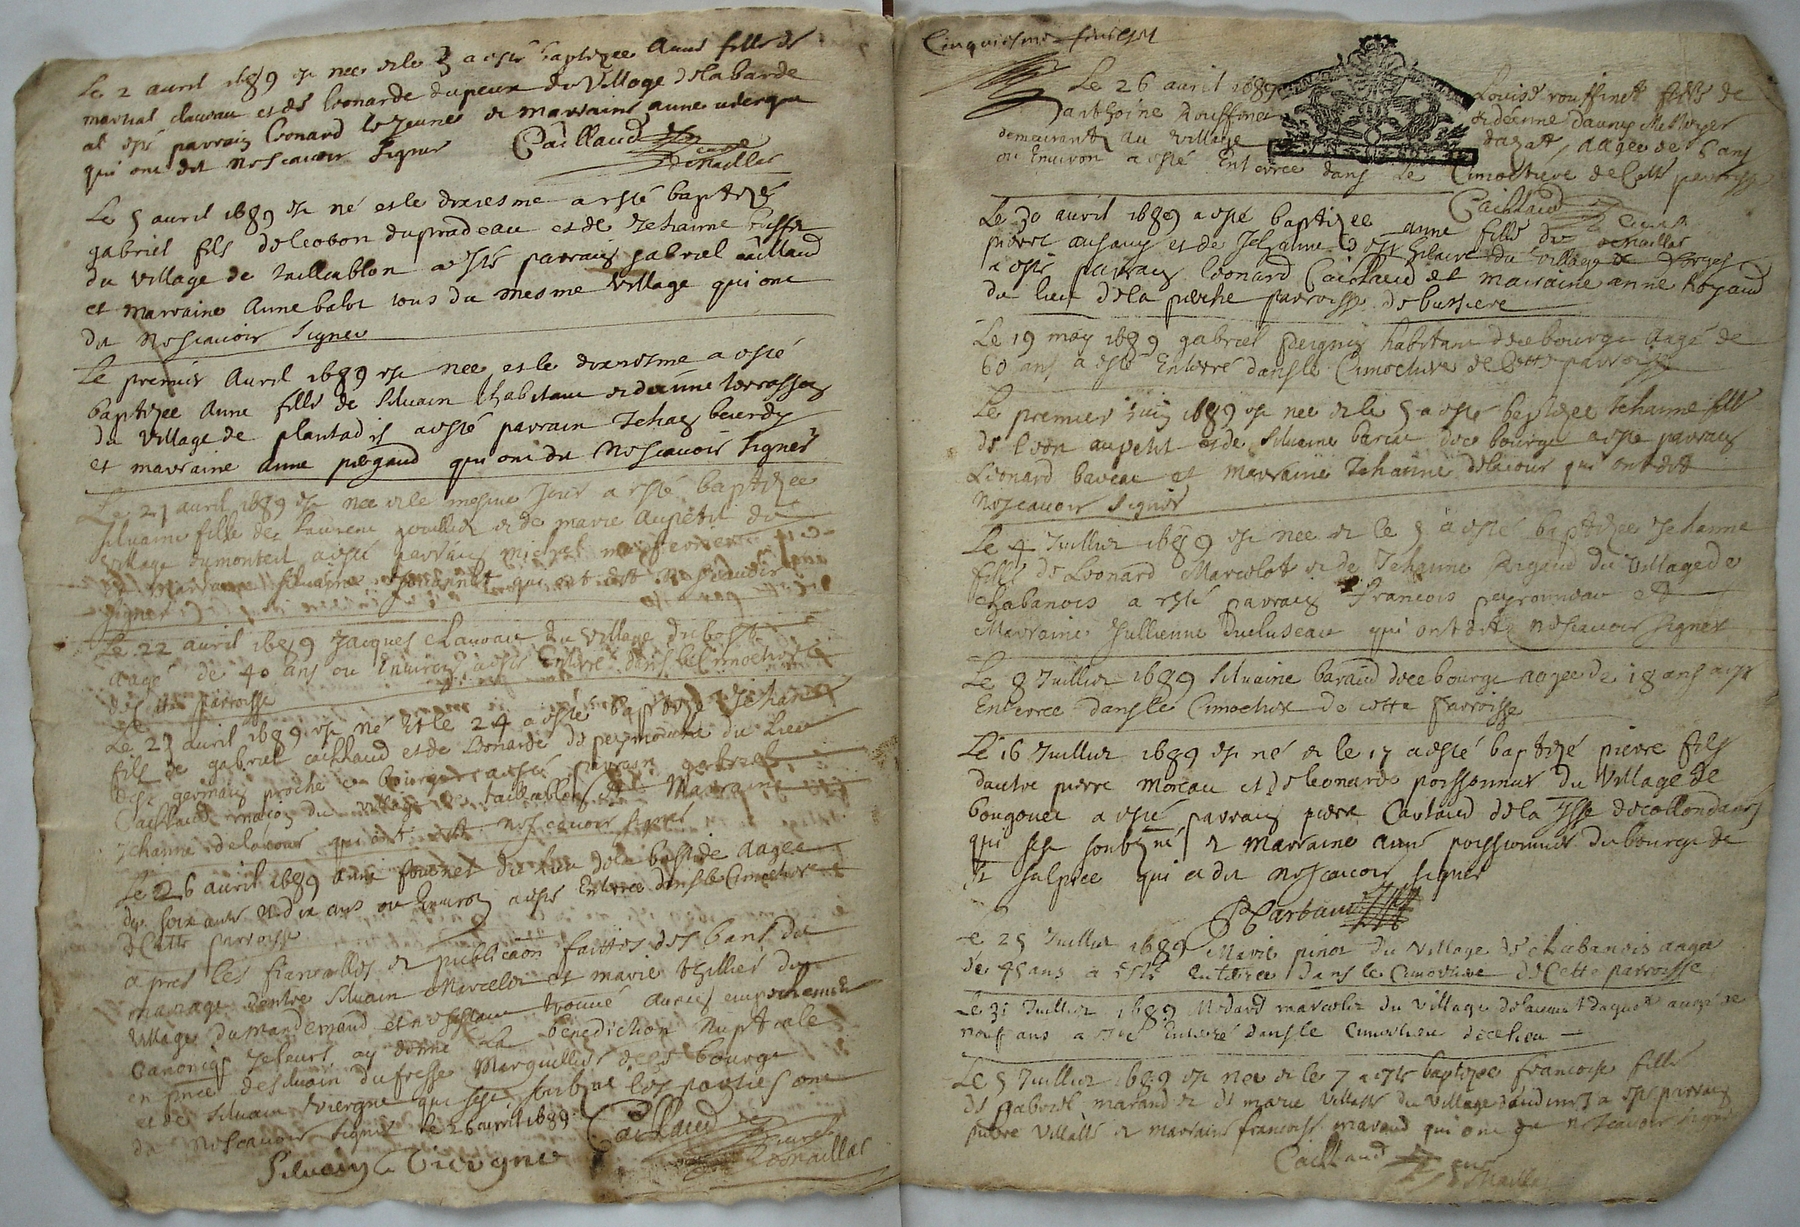 Le 2 avril 1689 est nee et le 3 a esté baptizee Anne fille de
martial clauau et de leonarde dupeux du Village delabarde
at esté parrain leonard le Jeune et marraine anne
qui ont dit ne scavoir signer Caillaud curé
de Naillac
Le 5 avril 1689 est né et le dixiesme a esté baptizé
gabriel fils de leobon dupradeau et de Jehanne
du village de taillablon a esté parrain gabriel caillaud
et marraine Anne balot tous du mesme village qui ont
dit ne scavoir signer
Le premier Avril 1689 est nee et le dixiesme a esté
baptizee Anne fille de Silvain habitant et de anne terrasson
du village de plantadis a esté parrain Jehan
et marraine anne pergaud qui ont dit ne scavoir signer
Le 21 avril 1689 est nee et le mesme Jour a esté baptizee
Silvaine fille de Laurent et de marie Aupetit du
village dumonteil a esté parrain michel
et marraine silvaine qui ont dit ne scavoir
signer
Le 22 avril 1689 Jacques Clauau du village dubost
aagé de 40 ans ou Environ a esté Enterré dans le Cimetiere
de cette parroisse
Le 23 avril 1689 est né Et le 24 a esté baptizé Jehan
fils de gabriel caillaud et de Leonarde de peymoutier du Lieu
de st germain proche ce bourg a esté parrain gabriel
Caillaud maçon du village de taillablon et Marraine
Jehanne delacour qui ont dit ne scavoir signer
Le 26 avril 1689 anne du lieu dela bastide Aagee
de soixante et dix ans ou Environ a esté Enterree dans le Cimetiere
de Cette parroisse
apres les fiançailles et publicaon faittes des bans du
mariage dentre Silvain Marcelot et marie thillier du
village dumandement et ne sestant trouué aucun empechement
canonicq Je leurs ay donné la benediction Nuptiale
en pnce de siluain dufresse Marguillier de ce bourg
et de Siluain Vicergne qui sest soubzne les parties ont
dit ne scavoir signer le 26 avril 1689: Caillaud curé
Silvain Viergne de Naillac
Cinquiesme feuillet
Le 26 avril 1689 Louise rouffinet fille de
anthoine Rouffinet et de anne daunes Mestayer
demeurant au village dazat, aagee de 6 ans
ou Environ a esté Enterree dans le Cimetiere de Cette parroisse
Caillaud curé
de Naillac
Le 30 avril 1689 a esté baptizee anne fille de
pierre et de Jehanne du village de Vorges
a esté parrain leonard Caillaud et marraine anne Royaud
du lieu dela porche parroisse de bussiere
Le 19 may 1689 gabriel peignin habitant de ce bourg Aagé de
60 ans a esté Enterré dans le Cimetiere de Cette parroisse
Le premier Juin 1689 est nee et le 5 a esté baptizee Jehanne fille
de leon aupetit et de Silvaine de ce bourg a esté parrain
Léonard baveau et marraine Jehanne delacour qui ont dit
ne scavoir signer
Le 4 Juillet 1689 est nee et le 5 a esté baptizee Jehanne
fille de Leonard Marcelot et de Jehanne Rigaud du village de
chabanois a esté parrain francois peyronneau et
Marraine Jullienne duluseau qui ont dit ne scavoir signer
Le 8 Juillet 1689 Silvaine baraud de ce bourg aagee de 18 ans a esté
Enterree dans le Cimetiere de cette parroisse
Le 16 Juillet 1689 est né et le 17 a esté baptizé pierre fils
dautre pierre Moreau et de leonarde poissonnier du Village de
bougouet a esté parrain pierre Carbaud de la Isse de collondannes
qui sest soubzné et marraine Anne poissonnier du bourg de
st sulpice qui a dit ne scavoir signer
P Carbaud
Le 25 Juillet 1689 Marie pinot du Village de chabanois aagee
de 45 ans a esté enterree dans le Cimetiere de Cette parroisse
Le 31 Juillet 1689 Medard marcelot du village aagé de
neuf ans a esté Enterré dans le Cimetiere de ce lieu
Le 5 Juillet 1689 est nee et le 7 a esté baptizee francoise fille
de gabriel marand et de marie Villatte du village a esté parrain
pierre Villatte et marraine francoise marand qui ont dit ne scavoir signer
Caillaud curé
de Naillac